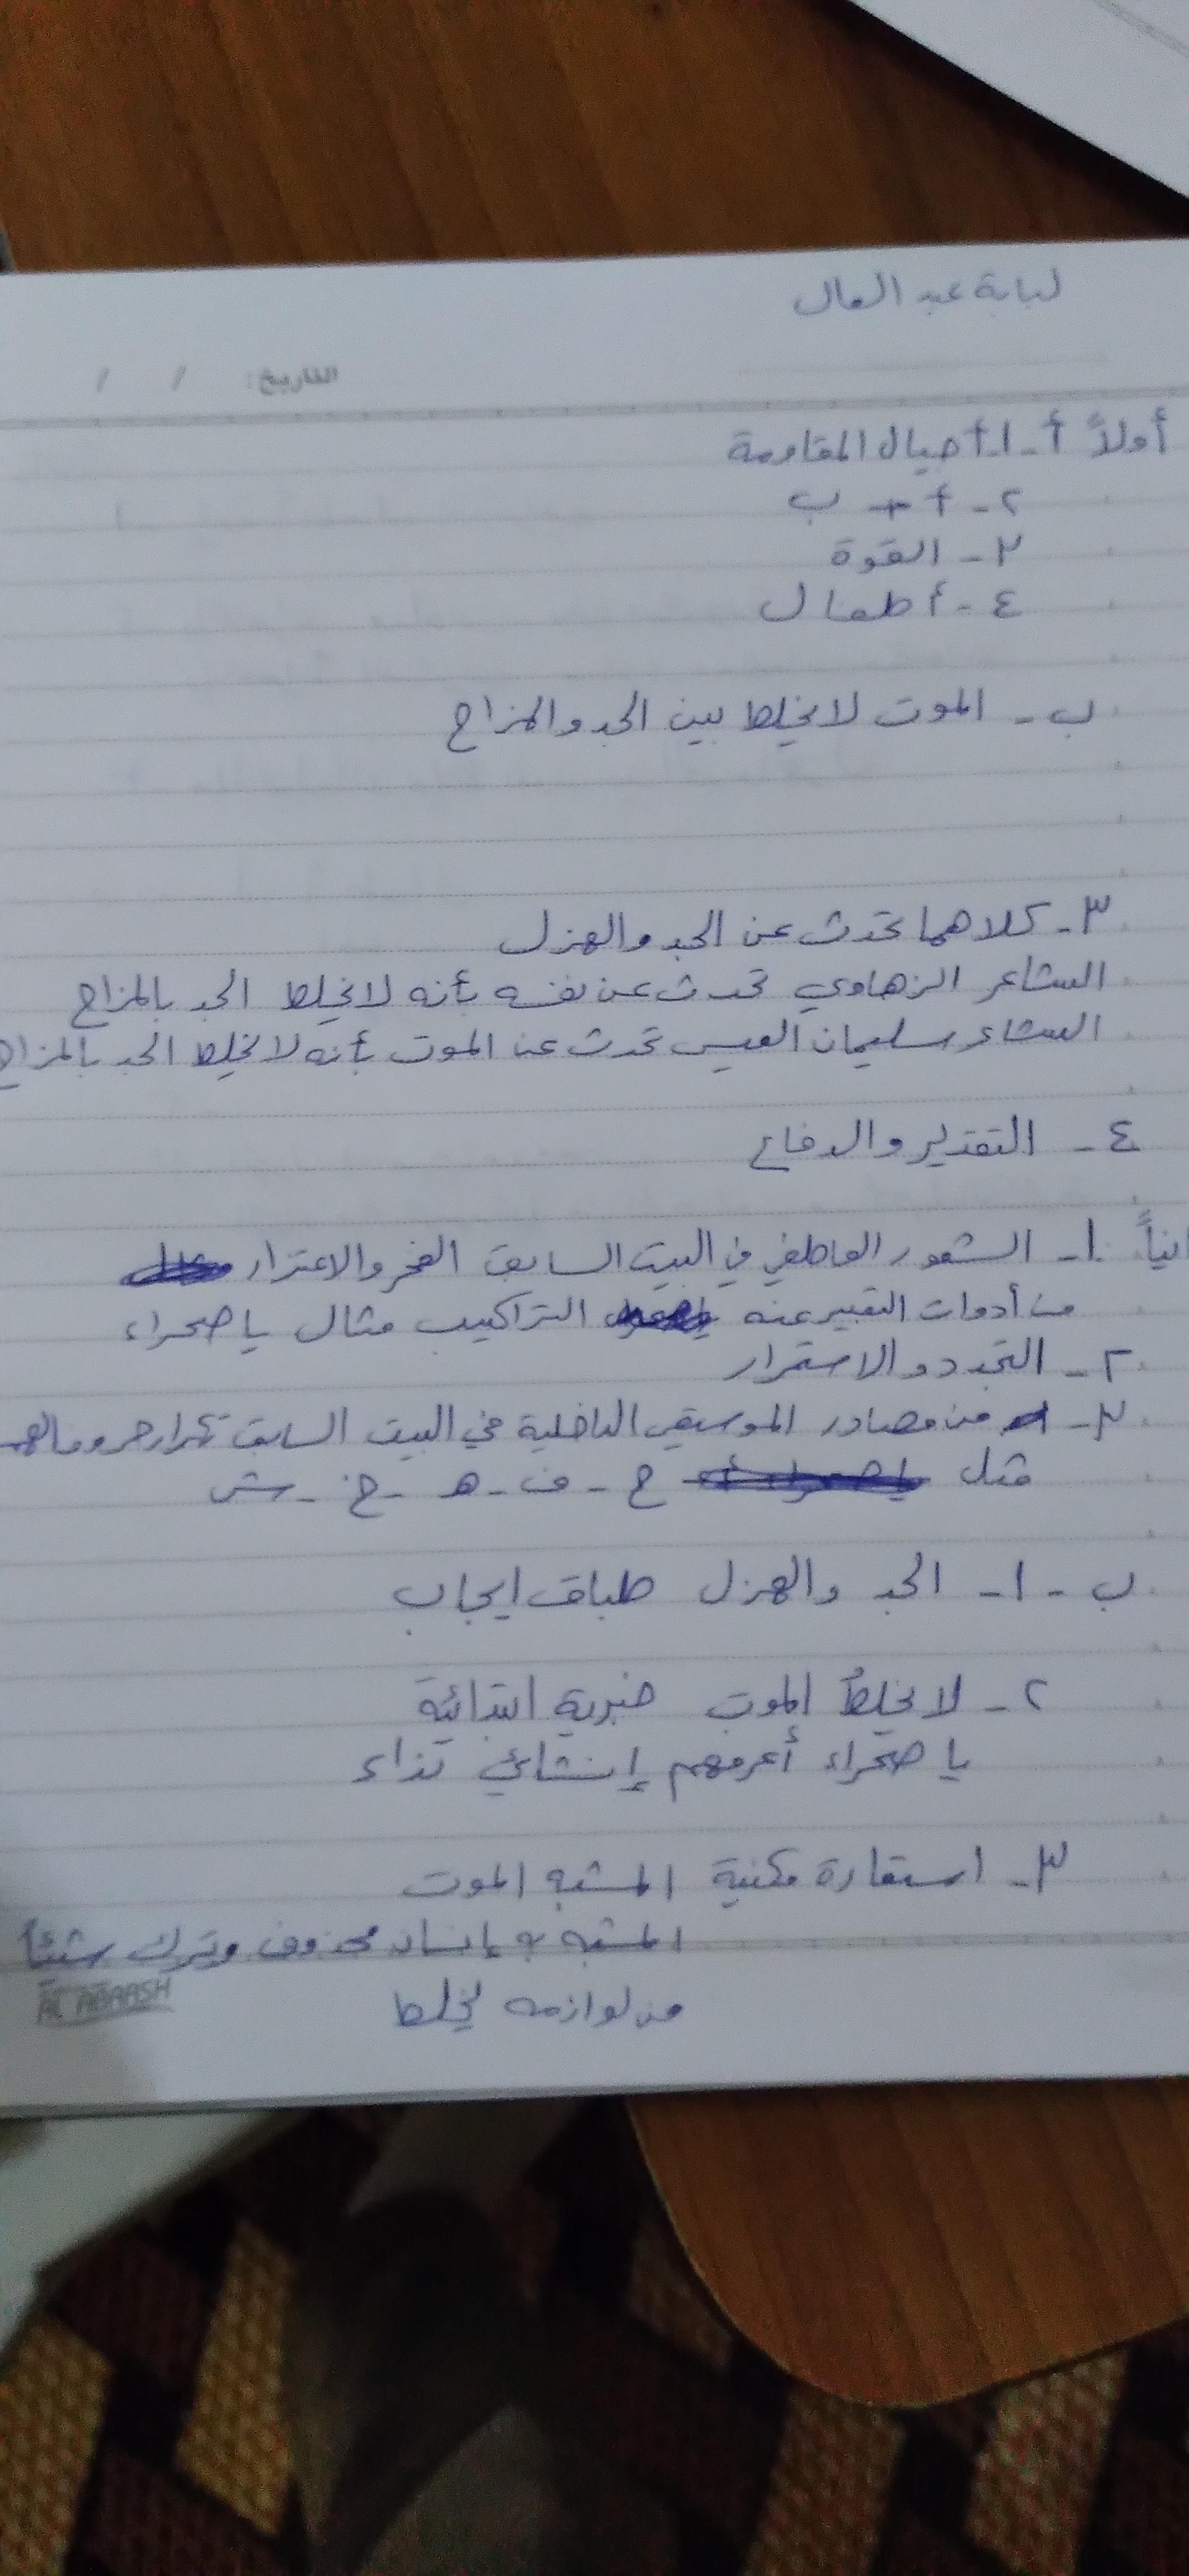 لبابة عبد العال
التاريخ: / /
أولاً أ - ١ - أجيال المقاومة
٢ - أ + ب
٣ - القوة
٤ - أطفال
ب - الموت لا يخلط بين الجد والمزاح
٣ - كلاهما تحدث عن الجد والهزل
الشاعر الزهاوي تحدث عن نفسه بأنه لا يخلط الجد بالمزاح
الشاعر سليمان العيسى تحدث عن الموت بأنه لا يخلط الجد بالمزاح
٤ - التقدير والدفاع
انياً ١ - الشعور العاطفي في البيت السابق الفخر والاعتزاز
من أدوات التعبير عنه التراكيب مثال يا صحراء
٢ - التجدد والاستمرار
٣ - من مصادر الموسيقى الداخلية في البيت السابق تكرار حروف
مثل ح - ف - ه - خ - ش
ب - ١ - الجد والهزل طباق ايجاب
٢ - لا يخلطُ الموت خبرية ابتدائية
يا صحراء أعرفهم إنشائي نداء
٣ - استعارة مكنية المشبه الموت
المشبه به إنسان محذوف وترك شيئاً
من لوازمه يخلط
AL ABAASH